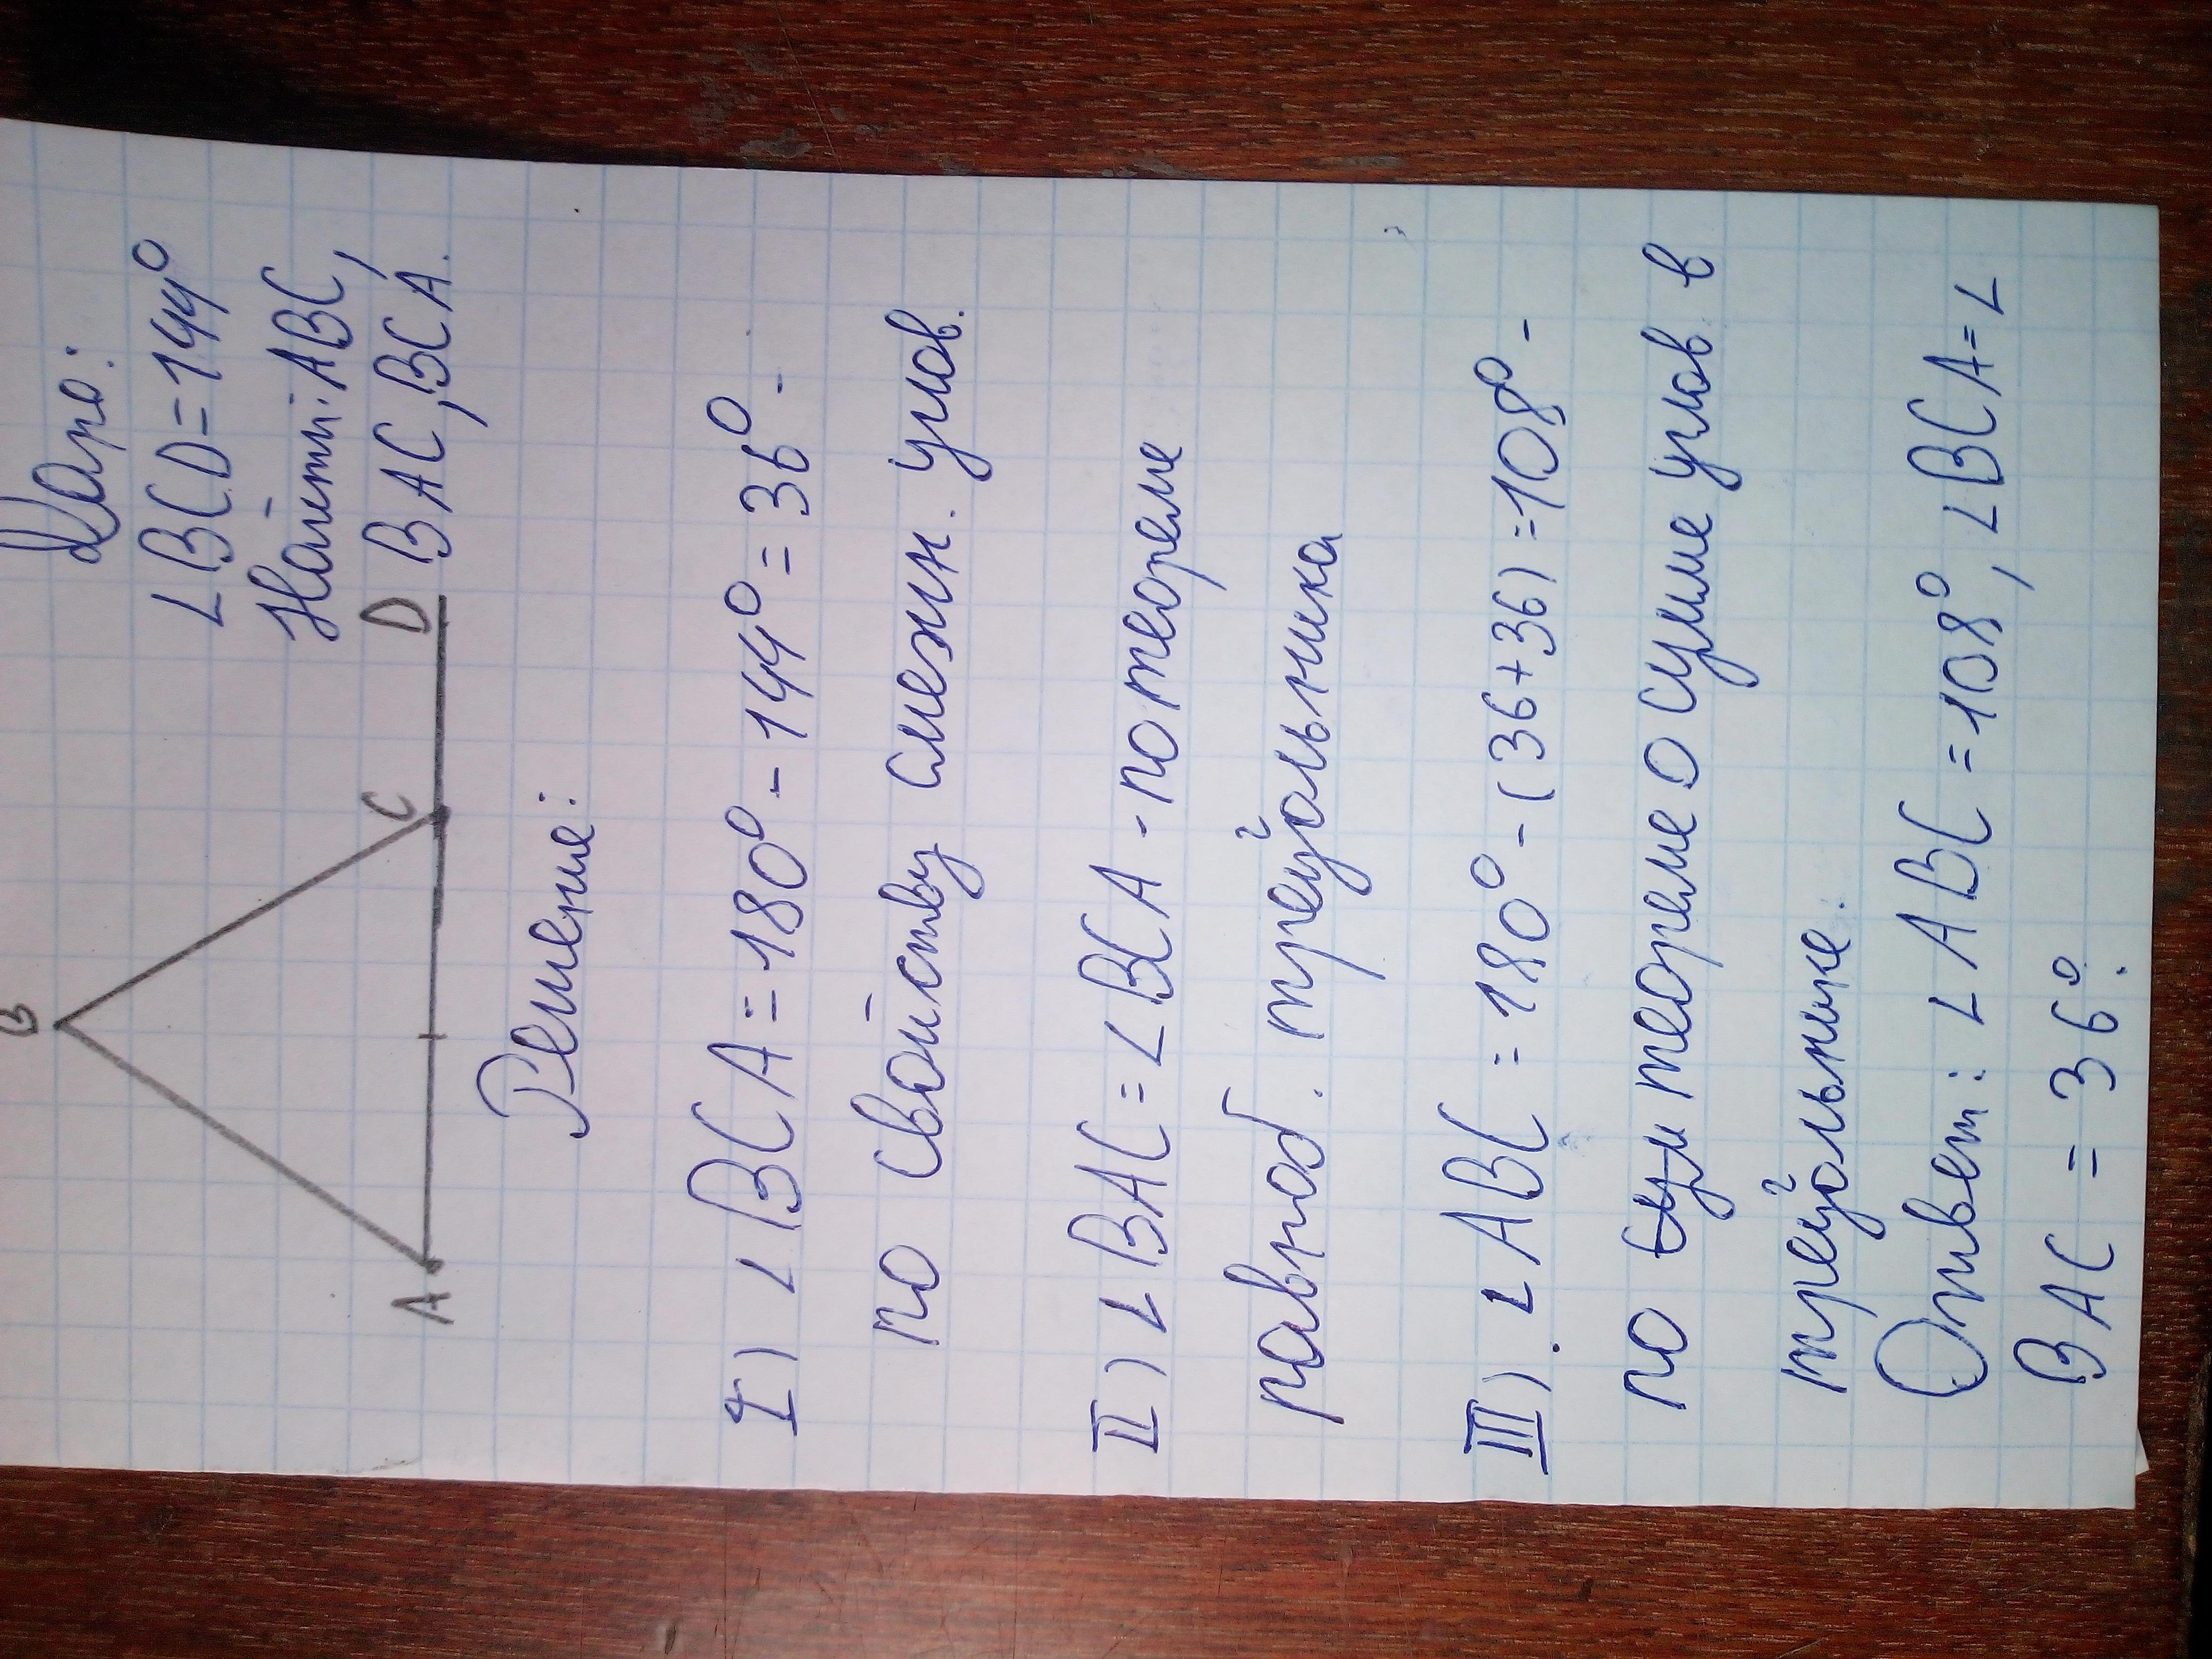 B
Дано:
∠BCD=144°
Найти: ABC,
A
C
D
BAC, BCA.
Решение:
I) ∠BCA=180°-144°=36°-
по свойству смежн. углов.
II) ∠BAC=∠BCA-по теореме
равноб. треугольника
III). ∠ABC=180°-(36+36)=108°-
по теореме о сумме углов в
треугольнике.
Ответ: ∠ABC=108°, ∠BCA=∠
BAC=36°.